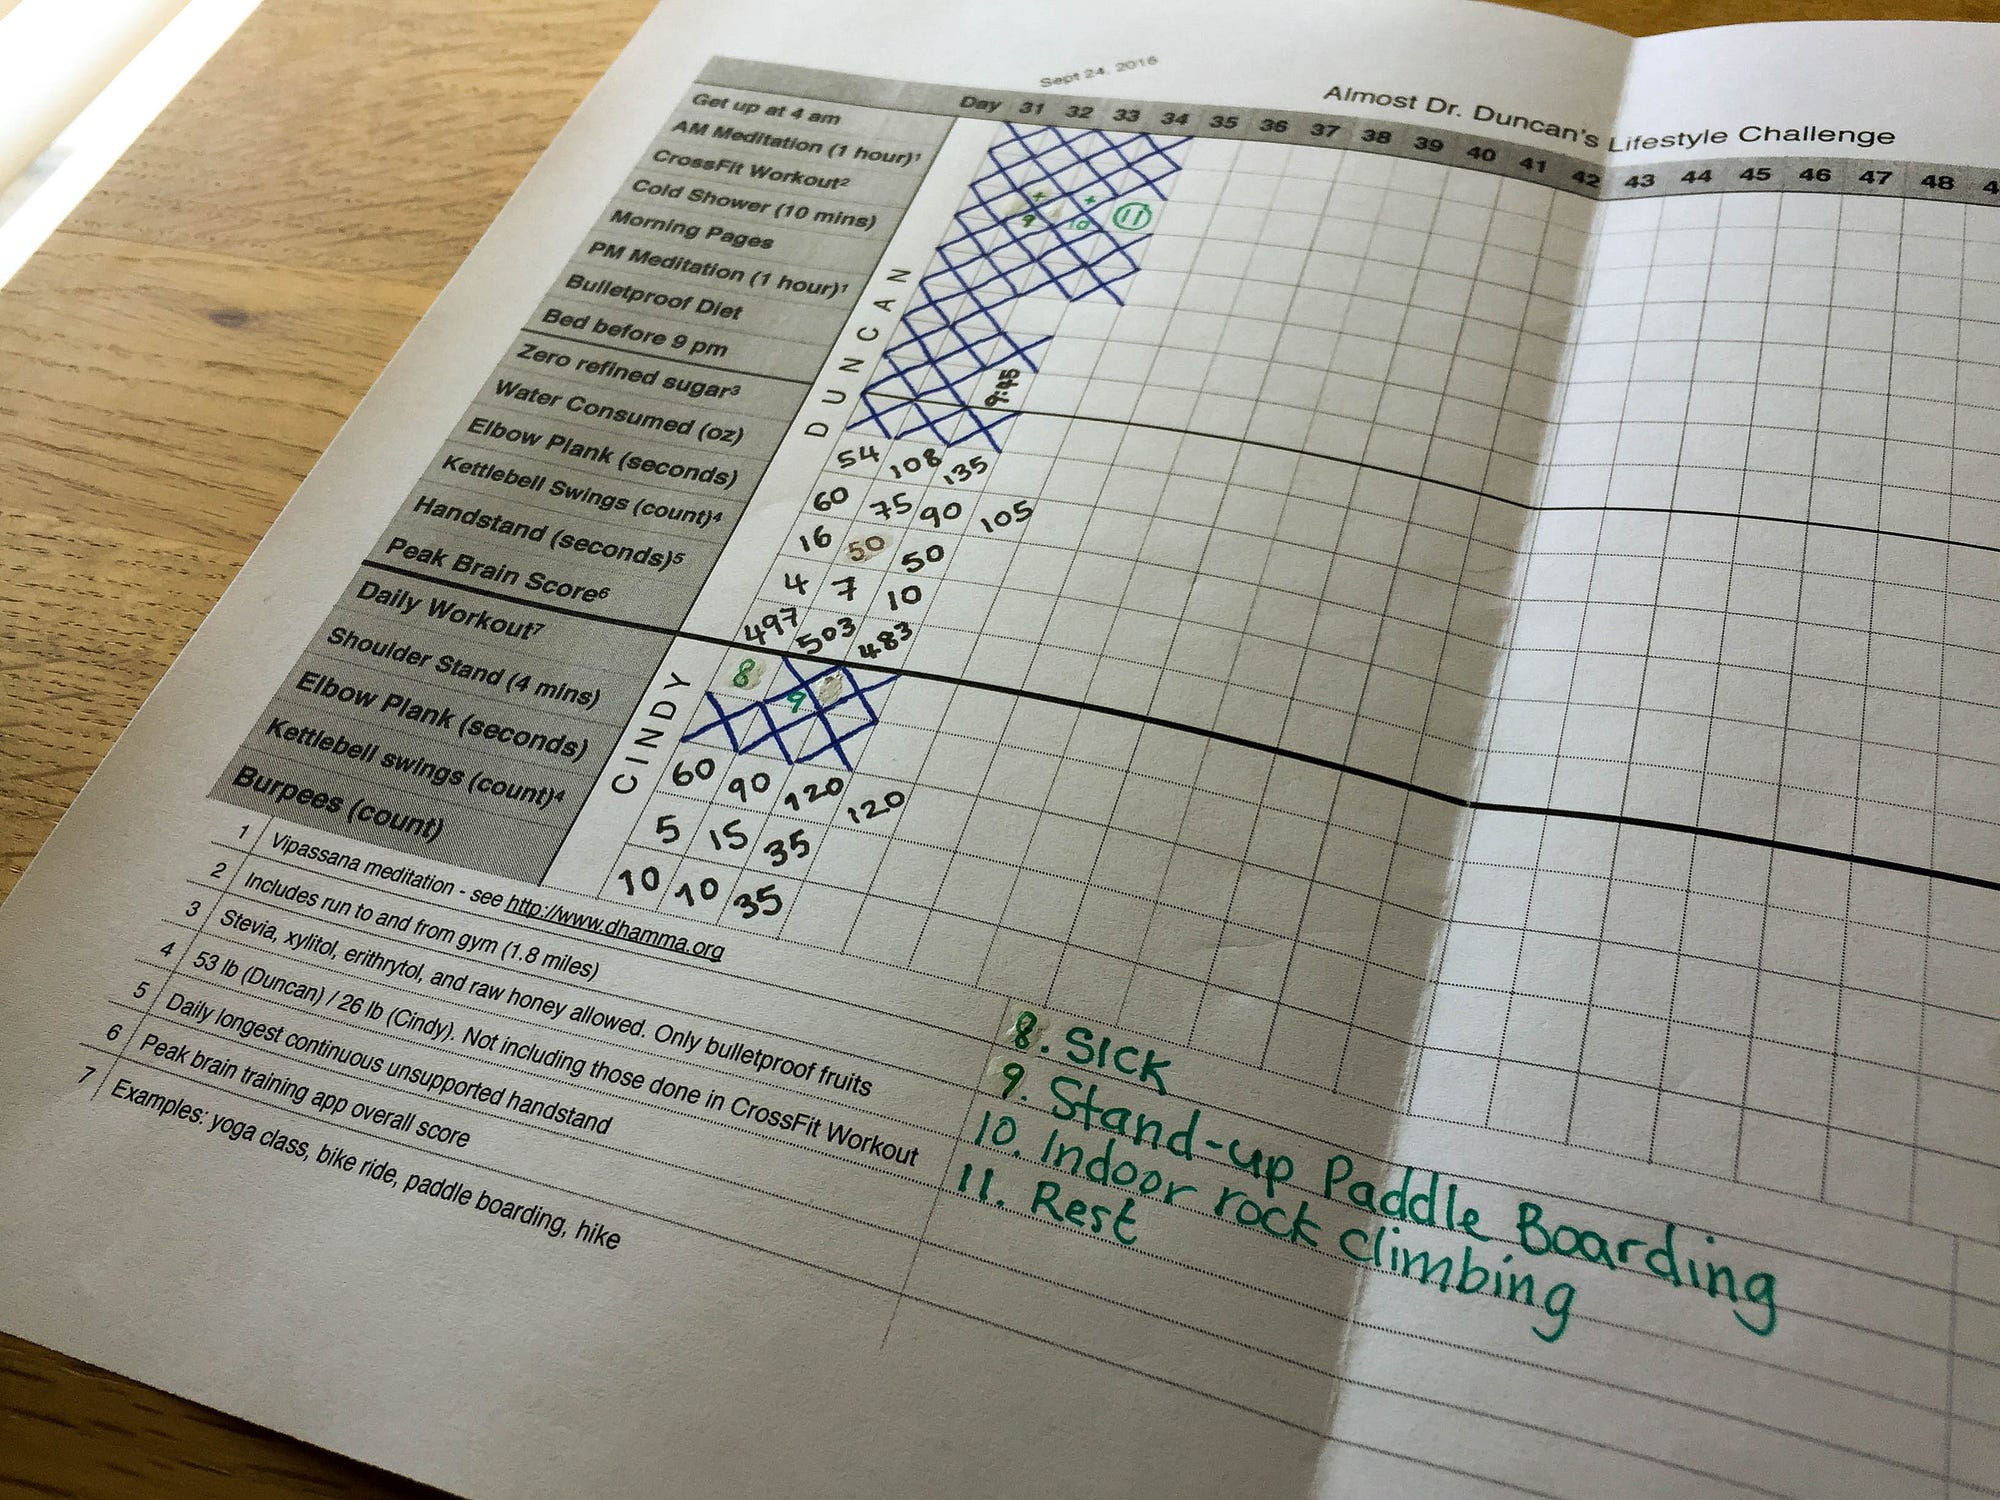 Sept 24, 2016
Almost Dr. Duncan's Lifestyle Challenge
Day 31 32 33 34 35 36 37 38 39 40 41 42 43 44 45 46 47 48 4
Get up at 4 am
AM Meditation (1 hour)¹
CrossFit Workout² + 9 + 10 11
Cold Shower (10 mins)
Morning Pages
PM Meditation (1 hour)¹
Bulletproof Diet
Bed before 9 pm 9:45
Zero refined sugar³
Water Consumed (oz) 54 108 135
Elbow Plank (seconds) 60 75 90 105
Kettlebell Swings (count)⁴ 16 50 50
Handstand (seconds)⁵ 4 7 10
Peak Brain Score⁶ 497 503 483
DUNCAN
Daily Workout⁷ 8 9
Shoulder Stand (4 mins)
Elbow Plank (seconds) 60 90 120 120
Kettlebell swings (count)⁴ 5 15 35
Burpees (count) 10 10 35
CINDY
1 Vipassana meditation - see http://www.dhamma.org
2 Includes run to and from gym (1.8 miles)
3 Stevia, xylitol, erithrytol, and raw honey allowed. Only bulletproof fruits
4 53 lb (Duncan) / 26 lb (Cindy). Not including those done in CrossFit Workout
5 Daily longest continuous unsupported handstand
6 Peak brain training app overall score
7 Examples: yoga class, bike ride, paddle boarding, hike
8. Sick
9. Stand-up Paddle Boarding
10. Indoor rock climbing
11. Rest